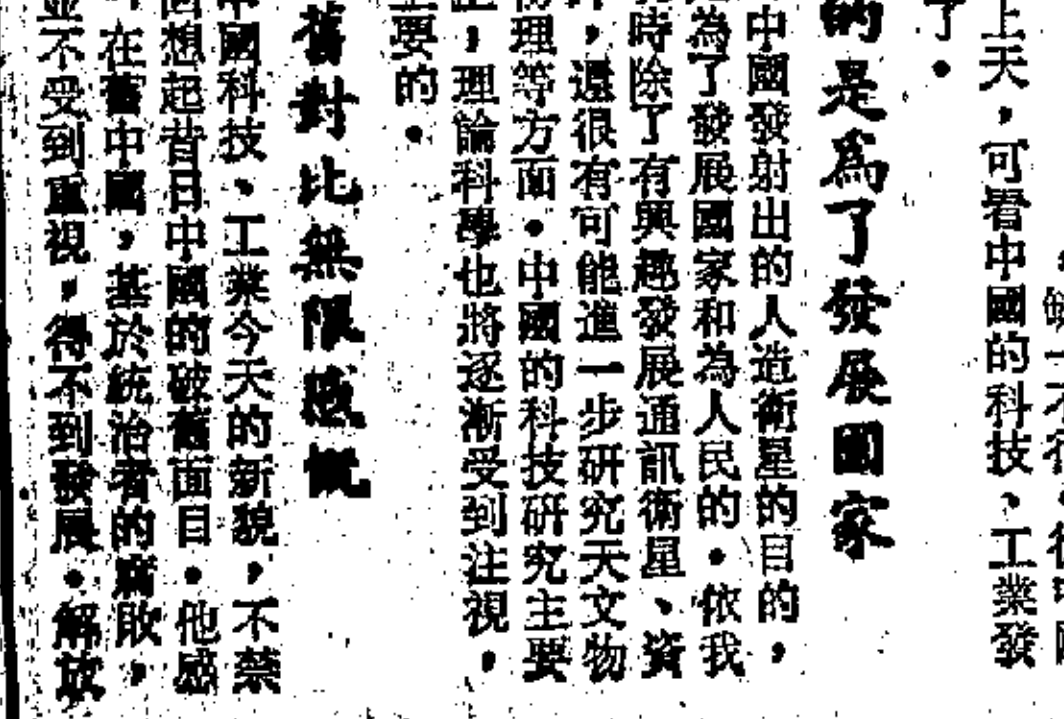 缺一不
上天，可看中國的科技、工業發
了。
的是爲了發展國家
中國發射出的人造衛星的目的，
為了發展國家和為人民的。依我
時除了有興趣發展通訊衛星、資
，還很有可能進一步研究天文物
物理等方面。中國的科技研究主要
，理論科學也將逐漸受到注視，
重要的。
舊對比無限感慨
中國科技、工業今天的新貌，不禁
回想起昔日中國的破舊面目。他感
，在舊中國，基於統治者的腐敗，
並不受到重視，得不到發展。解放